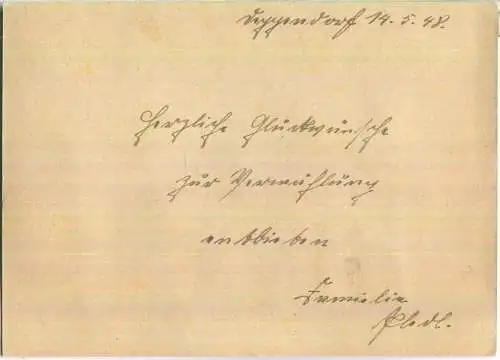 Deggendorf 14.5.48.
Herzliche Glückwünsche
zur Vermählung
entbieten
Familie